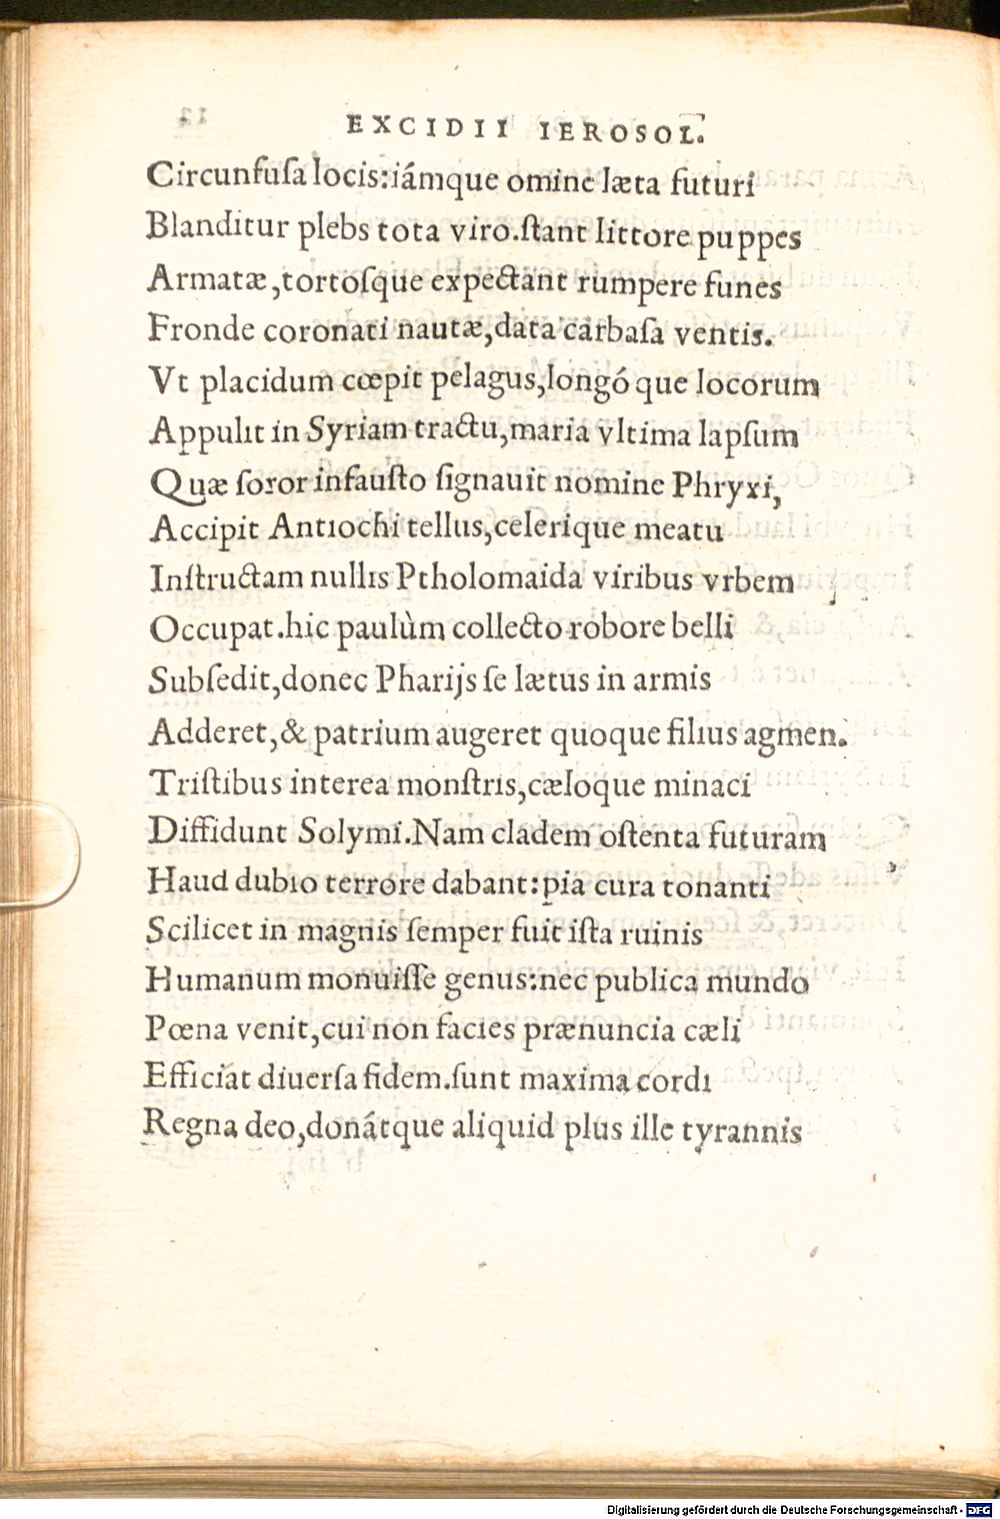 EXCIDII IEROSOL.
Circunfuſa locis:iámque omine læta futuri
Blanditur plebs tota viro.ſtant littore puppes
Armatæ,tortoſque expectant rumpere funes
Fronde coronati nautæ,data carbaſa ventis.
Vt placidum cœpit pelagus,longó que locorum
Appulit in Syriam tractu,maria vltima lapſum
Quæ ſoror infauſto ſignauit nomine Phryxi,
Accipit Antiochi tellus,celerique meatu
Inſtructam nullis Ptholomaida viribus vrbem
Occupat.hic paulùm collecto robore belli
Subſedit,donec Pharijs ſe lætus in armis
Adderet,& patrium augeret quoque filius agmen.
Triſtibus interea monſtris,cæloque minaci
Diffidunt Solymi.Nam cladem oſtenta futuram
Haud dubio terrore dabant:pia cura tonanti
Scilicet in magnis ſemper fuit iſta ruinis
Humanum monuiſſe genus:nec publica mundo
Pœna venit,cui non facies prænuncia cæli
Efficiat diuerſa fidem.ſunt maxima cordi
Regna deo,donátque aliquid plus ille tyrannis
Digitalisierung gefördert durch die Deutsche Forschungsgemeinschaft - DFG